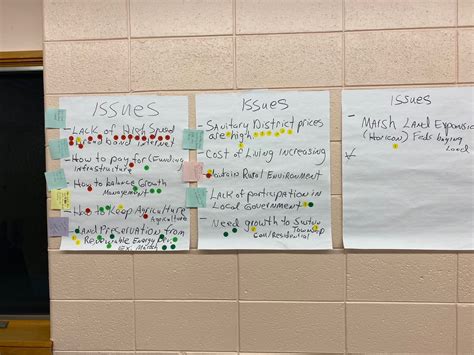 ISSUES
- LACK OF High Speed
Broad band internet
- How to pay for (Funding)
infrastructure
- How to balance Growth
Management
- How to Keep Agriculture
Agriculture
- LAND PRESERVATION from
Renewable Energy Dev.
Ex.
ISSUES
- Sanitary District prices
are high
- Cost of Living increasing
- Maintain Rural ENVIRONMENT
- Lack of participation in
Local Government
- Need growth to Sustain
Township
Com/Residential
ISSUES
- MARSH Land Expansion
(Horicon) Feds buying
Land